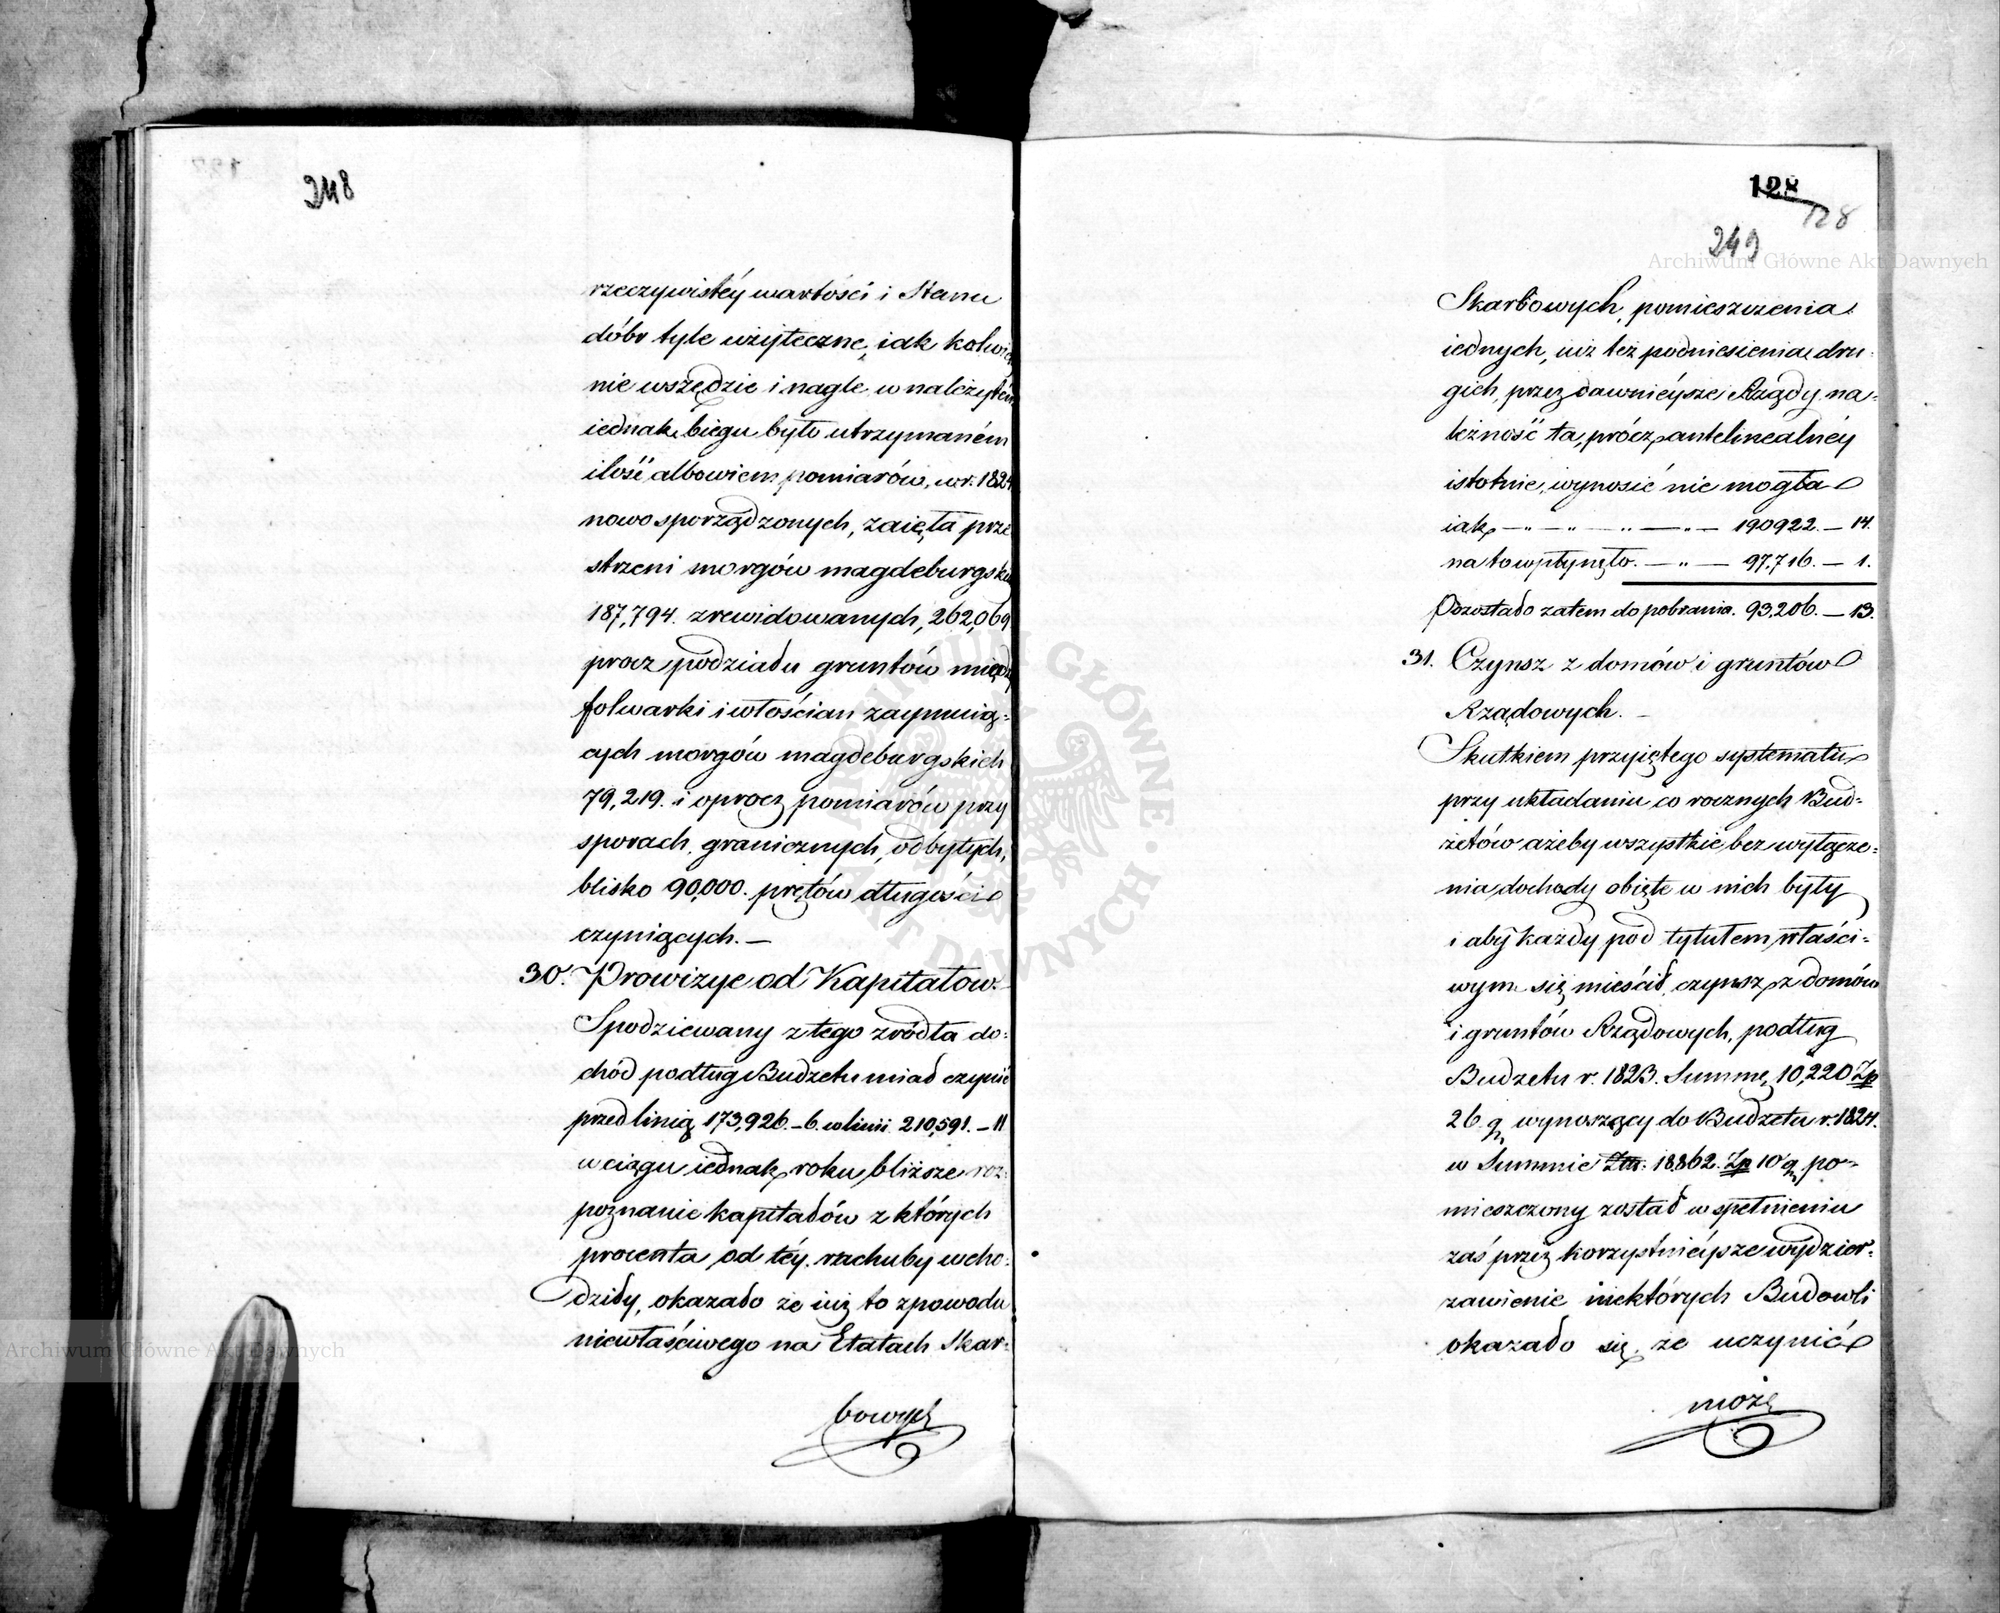 248
rzeczywistéy wartości i Stanu
dóbr tyle użyteczne, iak kolwiek
nie wszędzie i nagle w należytém
iednak biegu było utrzymaném
ilość albowiem pomiarów, w r. 1824
nowo sporządzonych, zaięła prze
strzeni morgów magdeburgskich
187,794. zrewidowanych, 262,069
procz podziału gruntów między
folwarki i włościan zaymuią-
cych morgów magdeburgskich
79,219. i oprocz pomiarów przy
sporach granicznych, odbytych,
blisko 90,000. prętów długości
czyniących. —
30. Prowizye od Kapitałow.
Spodziewany z tego zródła do-
chód podług Budżetu miał czynić
przed linią 173,926.-6. w linii 210,591.-11
w ciągu iednak roku bliższe roz-
poznanie kapitałów z których
procenta od téy rachuby wcho-
dziły, okazało że iuż to z powodu
niewłaściwego na Etatach Skar-
bowych
128
128
249
Skarbowych, pomieszczenia
iednych, iuż też podniesienia dru-
gich, przez dawnieysze Rządy na-
leżność ta, prócz antelinealnéy
istotnie, wynosić nie mogła
iak — " — " — " — " — 190922. — 14.
na to wpłynęło. — " — 97,716. — 1.
Pozostało zatem do pobrania. 93,206. — 13.
31. Czynsz z domów i gruntów
Rządowych. —
Skutkiem przyiętego systematu
przy układaniu co rocznych Bud-
żetów ażeby wszystkie bez wyłącze-
nia dochody obięte w nich były
i aby każdy pod tytułem właści-
wym się mieścił, czynsz z domów
i gruntów Rządowych, podług
Budżetu r. 1823. Summę 10,220 Zp
26 g. wynoszący do Budżetu r. 1824.
w Summie 18,862. Zp 10 g. po-
mieszczony został w spełnieniu
zaś przez korzystnieysze wydzier-
zawienie niektórych Budowli
okazało się, że uczynić
może
Archiwum Główne Akt Dawnych
Archiwum Główne Akt Dawnych
ARCHIWUM GŁÓWNE AKT DAWNYCH